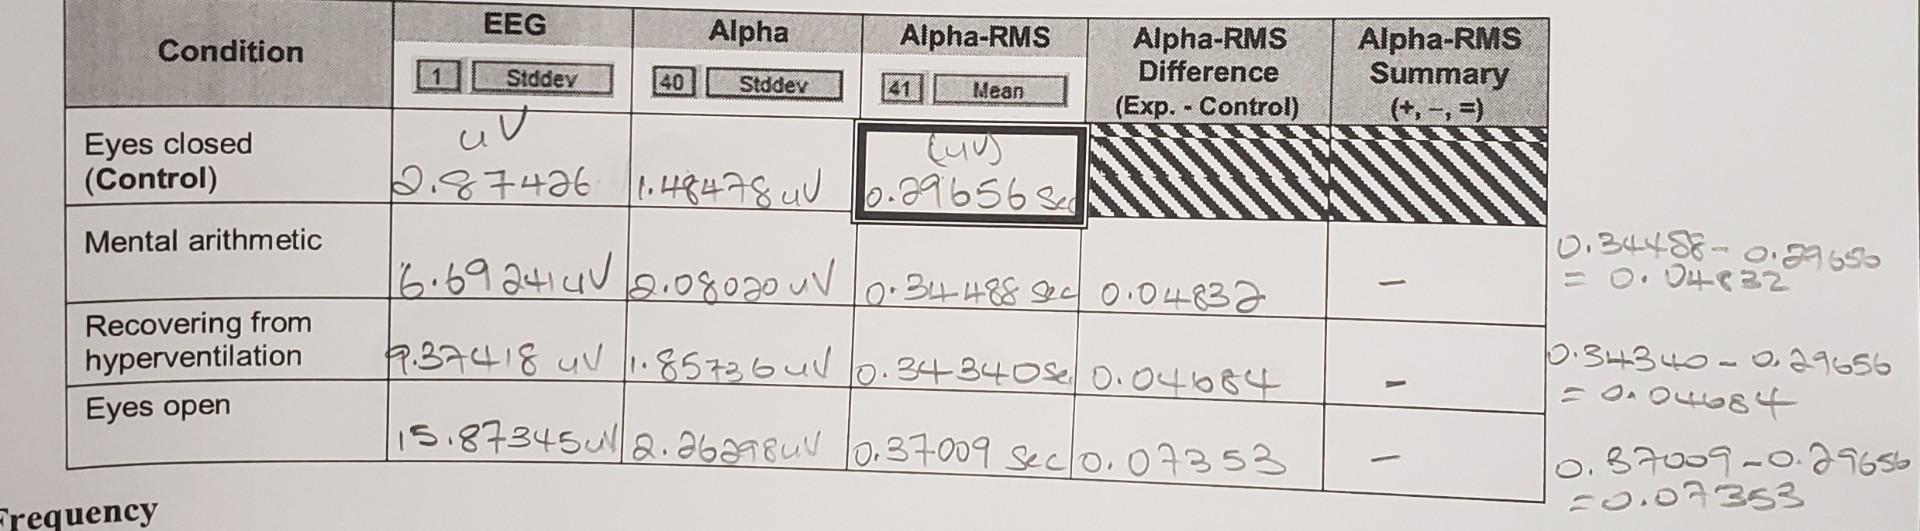 Condition
EEG
1 Stddev
Alpha
40 Stddev
Alpha-RMS
41 Mean
Alpha-RMS
Difference
(Exp. - Control)
Alpha-RMS
Summary
(+, –, =)
Eyes closed
(Control)
uV
2.87426
1.48478 uV
(uv)
0.29656 Sec
Mental arithmetic
6.69241 uV
2.08020 uV
0.34488 Sec
0.04832
–
0.34488 - 0.29656
= 0.04832
Recovering from
hyperventilation
9.37418 uV
1.85736 uV
0.34340 Se
0.04684
-
0.34340 - 0.29656
= 0.04684
Eyes open
15.87345 uV
2.26298 uV
0.37009 Sec
0.07353
–
0.37009 - 0.29656
= 0.07353
Frequency